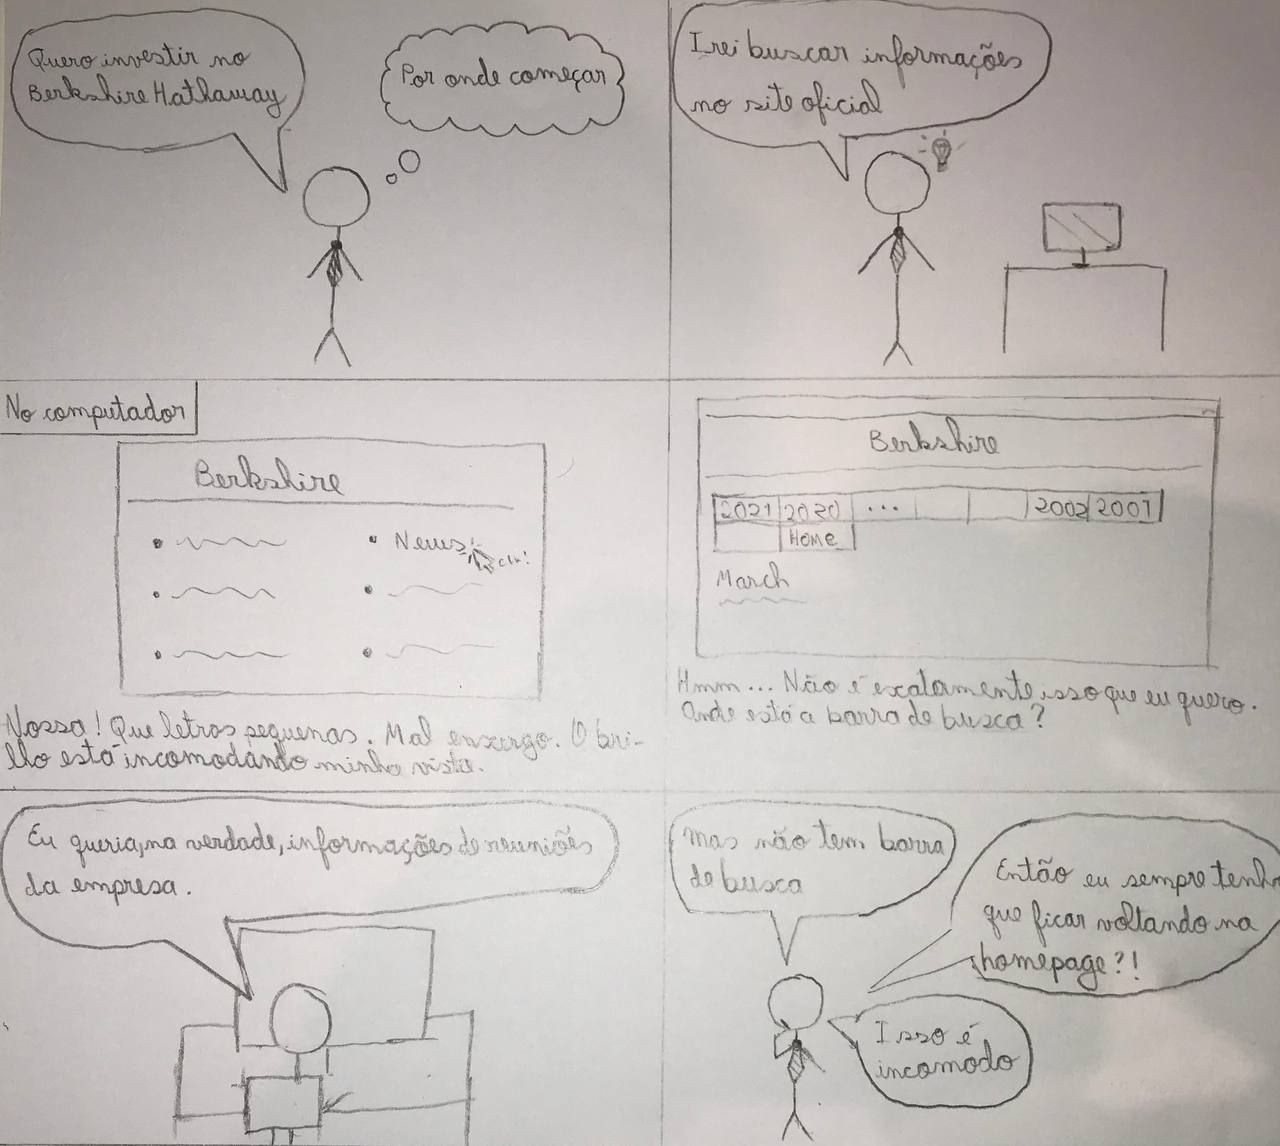 Quero investir no
Berkshire Hathaway
Por onde começar
Irei buscar informações
no site oficial
No computador
Berkshire
News
clic!
Nossa! Que letras pequenas. Mal enxergo. O bri-
lho está incomodando minha vista.
Berkshire
2021 2020 ... 2002 2001
Home
March
Hmm... Não é exatamente isso que eu quero.
Onde está a barra de busca?
Eu queria, na verdade, informações de reuniões
da empresa.
Mas não tem barra
de busca
Então eu sempre tenho
que ficar voltando na
homepage?!
Isso é
incomodo